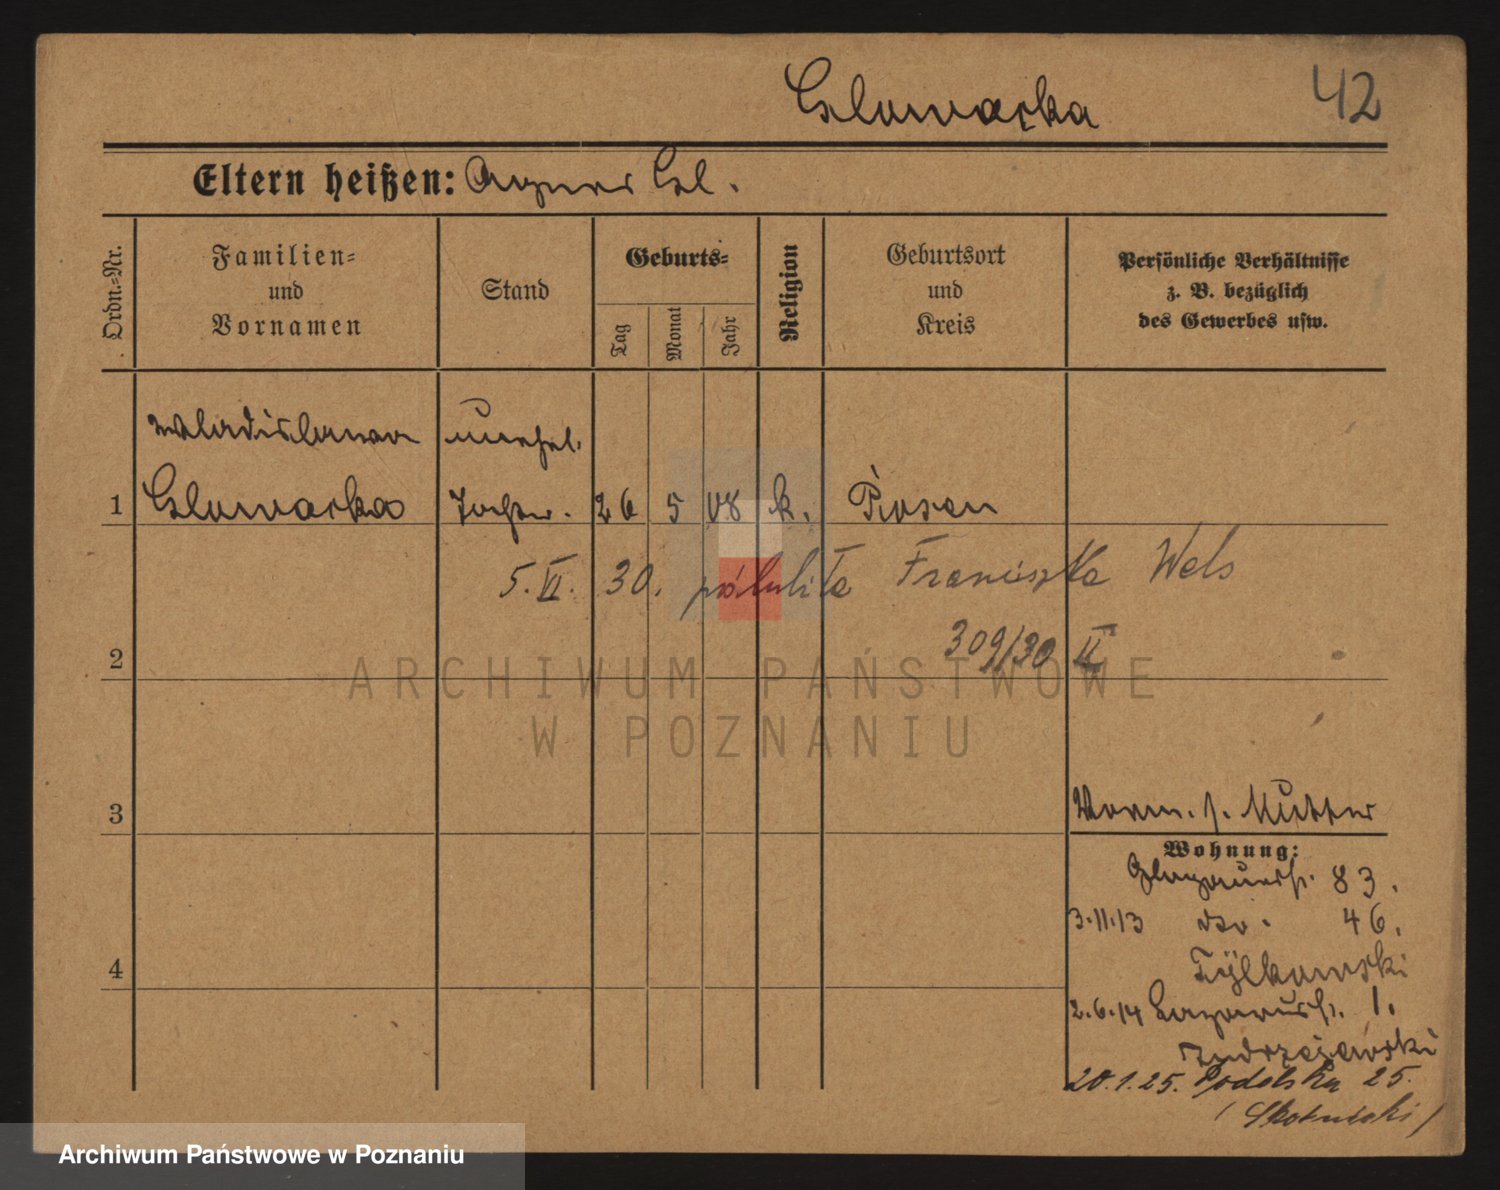 Glowacka
42
Eltern heißen: Agnes Gl.
Ordn.=Nr.
Familien=
und
Vornamen
Stand
Geburts=
Tag
Monat
Jahr
Religion
Geburtsort
und
Kreis
Persönliche Verhältnisse
z. B. bezüglich
des Gewerbes usw.
Wladislawa unehel.
1 Glowacka Tochter. 26 5 08 k. Posen
5.VI. 30. poślubiła Franciszka Wels
309/30 II
2
3
Vorm. s. Mutter
Wohnung:
Glogauerstr. 83.
3.11.13 dto. 46.
Tylkowski
4
2.6.14 Lazarusstr. 1.
Andrzejewski
20.1.25. Podolska 25.
(Skotnicki)
ARCHIWUM PAŃSTWOWE
W POZNANIU
Archiwum Państwowe w Poznaniu